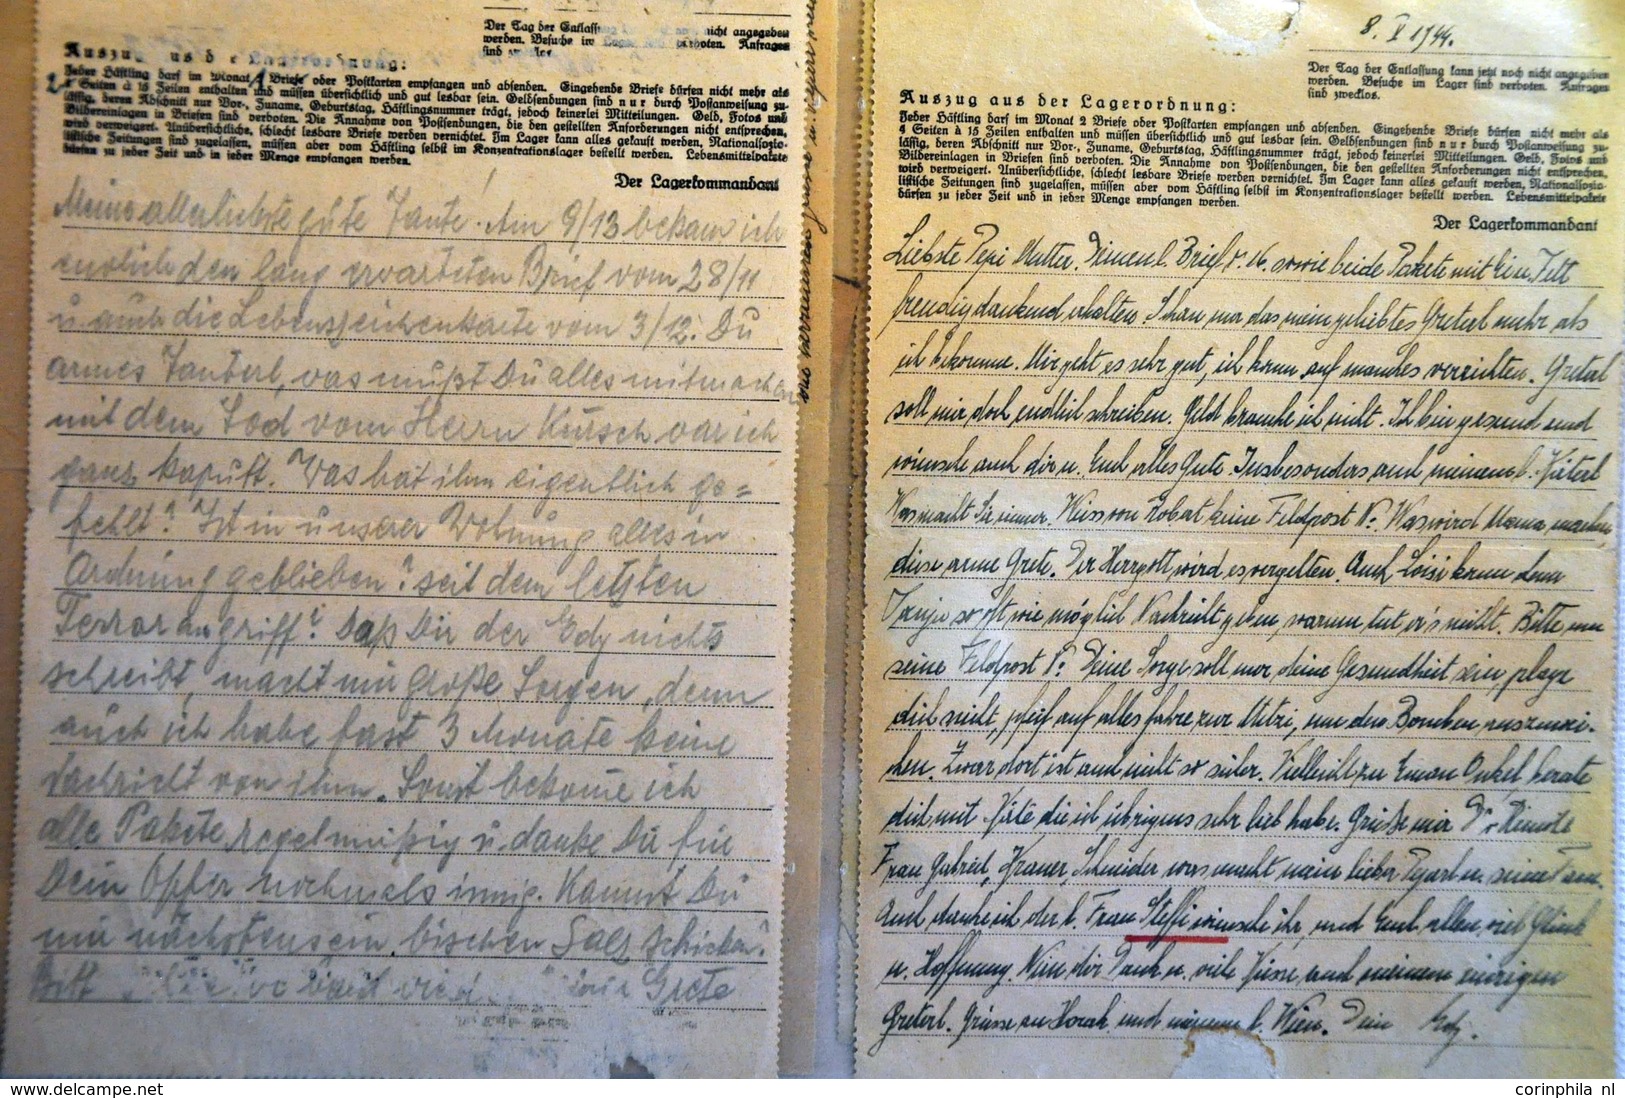 Der Tag der Entlassung nicht angegeben
werden. Besuche im Lager sind verboten. Anfragen
sind zwecklos.
Auszug aus der Lagerordnung:
Jeder Häftling darf im Monat Briefe oder Postkarten empfangen und absenden. Eingehende Briefe dürfen nicht mehr als
Seiten à 15 Zeilen enthalten und müssen übersichtlich und gut lesbar sein. Geldsendungen sind nur durch Postanweisung zu-
lässig, deren Abschnitt nur Vor-, Zuname, Geburtstag, Häftlingsnummer trägt, jedoch keinerlei Mitteilungen. Geld, Fotos und
Bildereinlagen in Briefen sind verboten. Die Annahme von Postsendungen, die den gestellten Anforderungen nicht entsprechen,
wird verweigert. Unübersichtliche, schlecht lesbare Briefe werden vernichtet. Im Lager kann alles gekauft werden, Nationalsozia-
listische Zeitungen sind zugelassen, müssen aber vom Häftling selbst im Konzentrationslager bestellt werden. Lebensmittelpakete
dürfen zu jeder Zeit und in jeder Menge empfangen werden.
Der Lagerkommandant
Meine allerliebste gute Tante! Am 9/13 bekam ich
endlich den lang erwarteten Brief vom 28/11
u auch die Lebenszeichenkarte vom 3/12. Du
armes Tanterl, was mußt Du alles mitmachen
mit dem Tod vom Herrn Kursch war ich
ganz kaputt. Was hat ihm eigentlich ge=
fehlt? Ist in unserer Wohnung alles in
Ordnung geblieben? seit dem letzten
Terrorangriff? Daß Dir der Edy nichts
schreibt, macht mir große Sorgen, denn
auch ich habe fast 3 Monate keine
Nachricht von ihm. Sonst bekomme ich
alle Pakete regelmäßig u. danke Dir für
Dein Opfer nochmals innig. Kannst Du
mir nächstens ein bischen Salz schicken.
Bitt bald Grete
8. V 1944.
Der Tag der Entlassung kann jetzt noch nicht angegeben
werden. Besuche im Lager sind verboten. Anfragen
sind zwecklos.
Auszug aus der Lagerordnung:
Jeder Häftling darf im Monat 2 Briefe oder Postkarten empfangen und absenden. Eingehende Briefe dürfen nicht mehr als
4 Seiten à 15 Zeilen enthalten und müssen übersichtlich und gut lesbar sein. Geldsendungen sind nur durch Postanweisung zu-
lässig, deren Abschnitt nur Vor-, Zuname, Geburtstag, Häftlingsnummer trägt, jedoch keinerlei Mitteilungen. Geld, Fotos und
Bildereinlagen in Briefen sind verboten. Die Annahme von Postsendungen, die den gestellten Anforderungen nicht entsprechen,
wird verweigert. Unübersichtliche, schlecht lesbare Briefe werden vernichtet. Im Lager kann alles gekauft werden, Nationalsozia-
listische Zeitungen sind zugelassen, müssen aber vom Häftling selbst im Konzentrationslager bestellt werden. Lebensmittelpakete
dürfen zu jeder Zeit und in jeder Menge empfangen werden.
Der Lagerkommandant
Liebste Pepi Mutter. Deinen l. Brief v. 16. sowie beide Pakete mit Fett
freudig dankend erhalten. Schau nur das mein geliebtes Greterl mehr als
ich bekomme. Mir geht es sehr gut, ich kann auf manches verzichten. Greterl
soll mir doch endlich schreiben. Geld brauche ich nicht. Ich bin gesund und
wünsche auch dir u. Euch alles Gute. Insbesonders auch meinem l. Vaterl
Was macht Sie immer. Weiss von Robert keine Feldpost No. Was wird Mama machen,
diese arme Grete. Der Herrgott wird es vergelten. Auch Loisi kann dem
so oft wie möglich Nachricht geben, warum tut er's nicht. Bitte um
seine Feldpost No. Deine Sorge soll nur deine Gesundheit sein, plage
dich nicht, pfeif auf alles fahre zur Mitzi, um den Bomben auszuwei-
chen. Zwar dort ist auch nicht so sicher. Vielleicht zu Eman Onkel, berate
dich mit die ich übrigens sehr lieb habe. Grüße mir Dr.
Frau Gabriel, Kraner, Schneider was macht mein lieber u. seine Fam.
Auch danke ich der l. Frau Steffi wünsche ihr, und Euch allen viel Glück
u. Hoffnung. Nun dir Dank u. viele Küsse, auch meinem einzigen
Greterl. Grüsse an Horak und meinem l. Wien. Dein Edy.
corinphila nl
www.delcampe.net